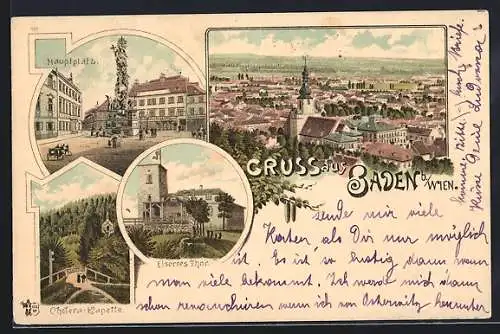 Hauptplatz.
GRUSS aus
BADEN b/WIEN.
Eisernes Thor.
Cholera-Kapelle
sende mir viele
Karten, als Dir nur möglich
ist. Es ist so lustig dann wenn
man viele bekommt. Ich werde mich dann
schon revanchieren wenn ich von Osterwitz herunter
komme, bitte, noch Briefe.
Küsse Deine Ludovica